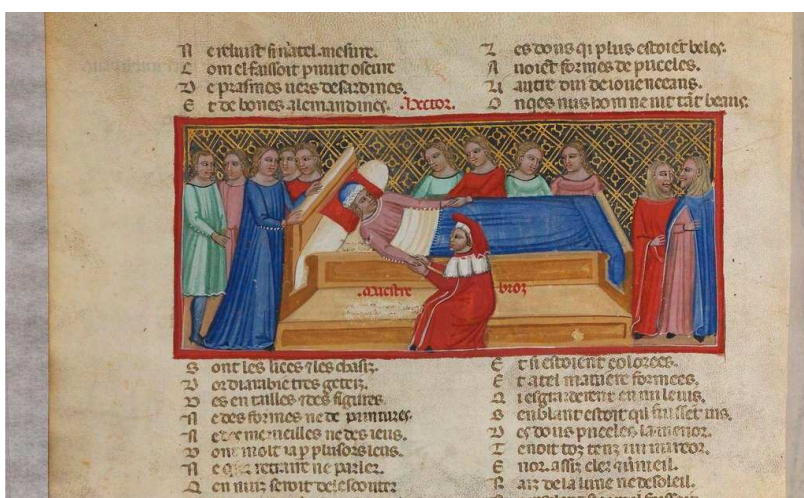 N e reluist si natel mesure.
C om el faissoit p nuit oscure
D e prasmes uers de sardines.
E t de bones alemandines. .Hector.
L es dous qi plus estoiēt beles.
A uoiēt formes de puceles.
L i autre dui de iouenceaus.
O nqes nus hom ne uit tāt beaus.
.Maistre broz
S ont les lices 7 les chasiz.
D or
D es en tailles 7 des figures
N e des formes ne de pointures
N e des merueilles ne des ieus.
D ont molt ia p plusors leus.
N e retraire ne parler.
Q en nuiz seroit de lescouter
E t si estoient colorees.
E t a tel maniere formees.
Q i esgardeient en un leuis.
S enblant estoit qil fussēt uis.
D es dous puceles la menor.
T enoit toz tenz un mireor.
E n or assis cler 7 uermeil.
R aiz de la lune ne de soleil.